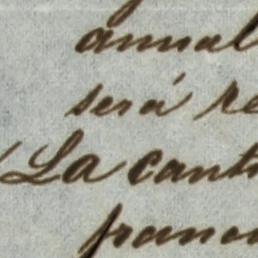 annal
será re
La canti
franc